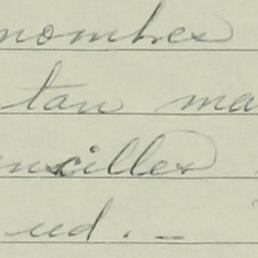 nombres
tan ma
encilles
ud. -